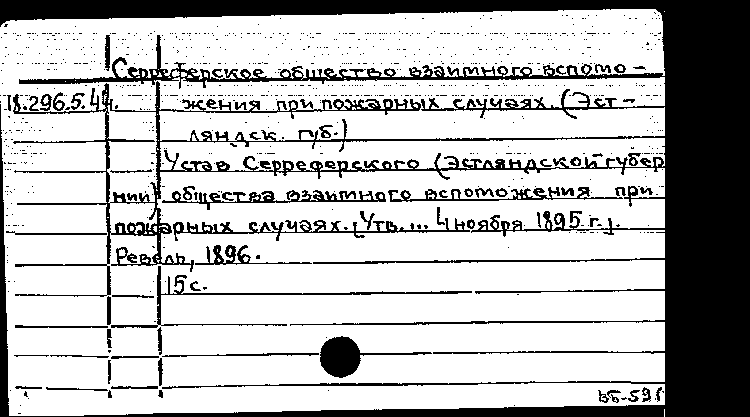 Серреферское общество взаимного вспомо-
18.296.5.44. жения при пожарных случаях. (Эст-
ляндск. губ.)
Устав Серреферского (Эстляндской губер
нии) общества взаимного вспоможения при
пожарных случаях. [Утв. ... 4 ноября 1895 г.].
Ревель, 1896.
15 с.